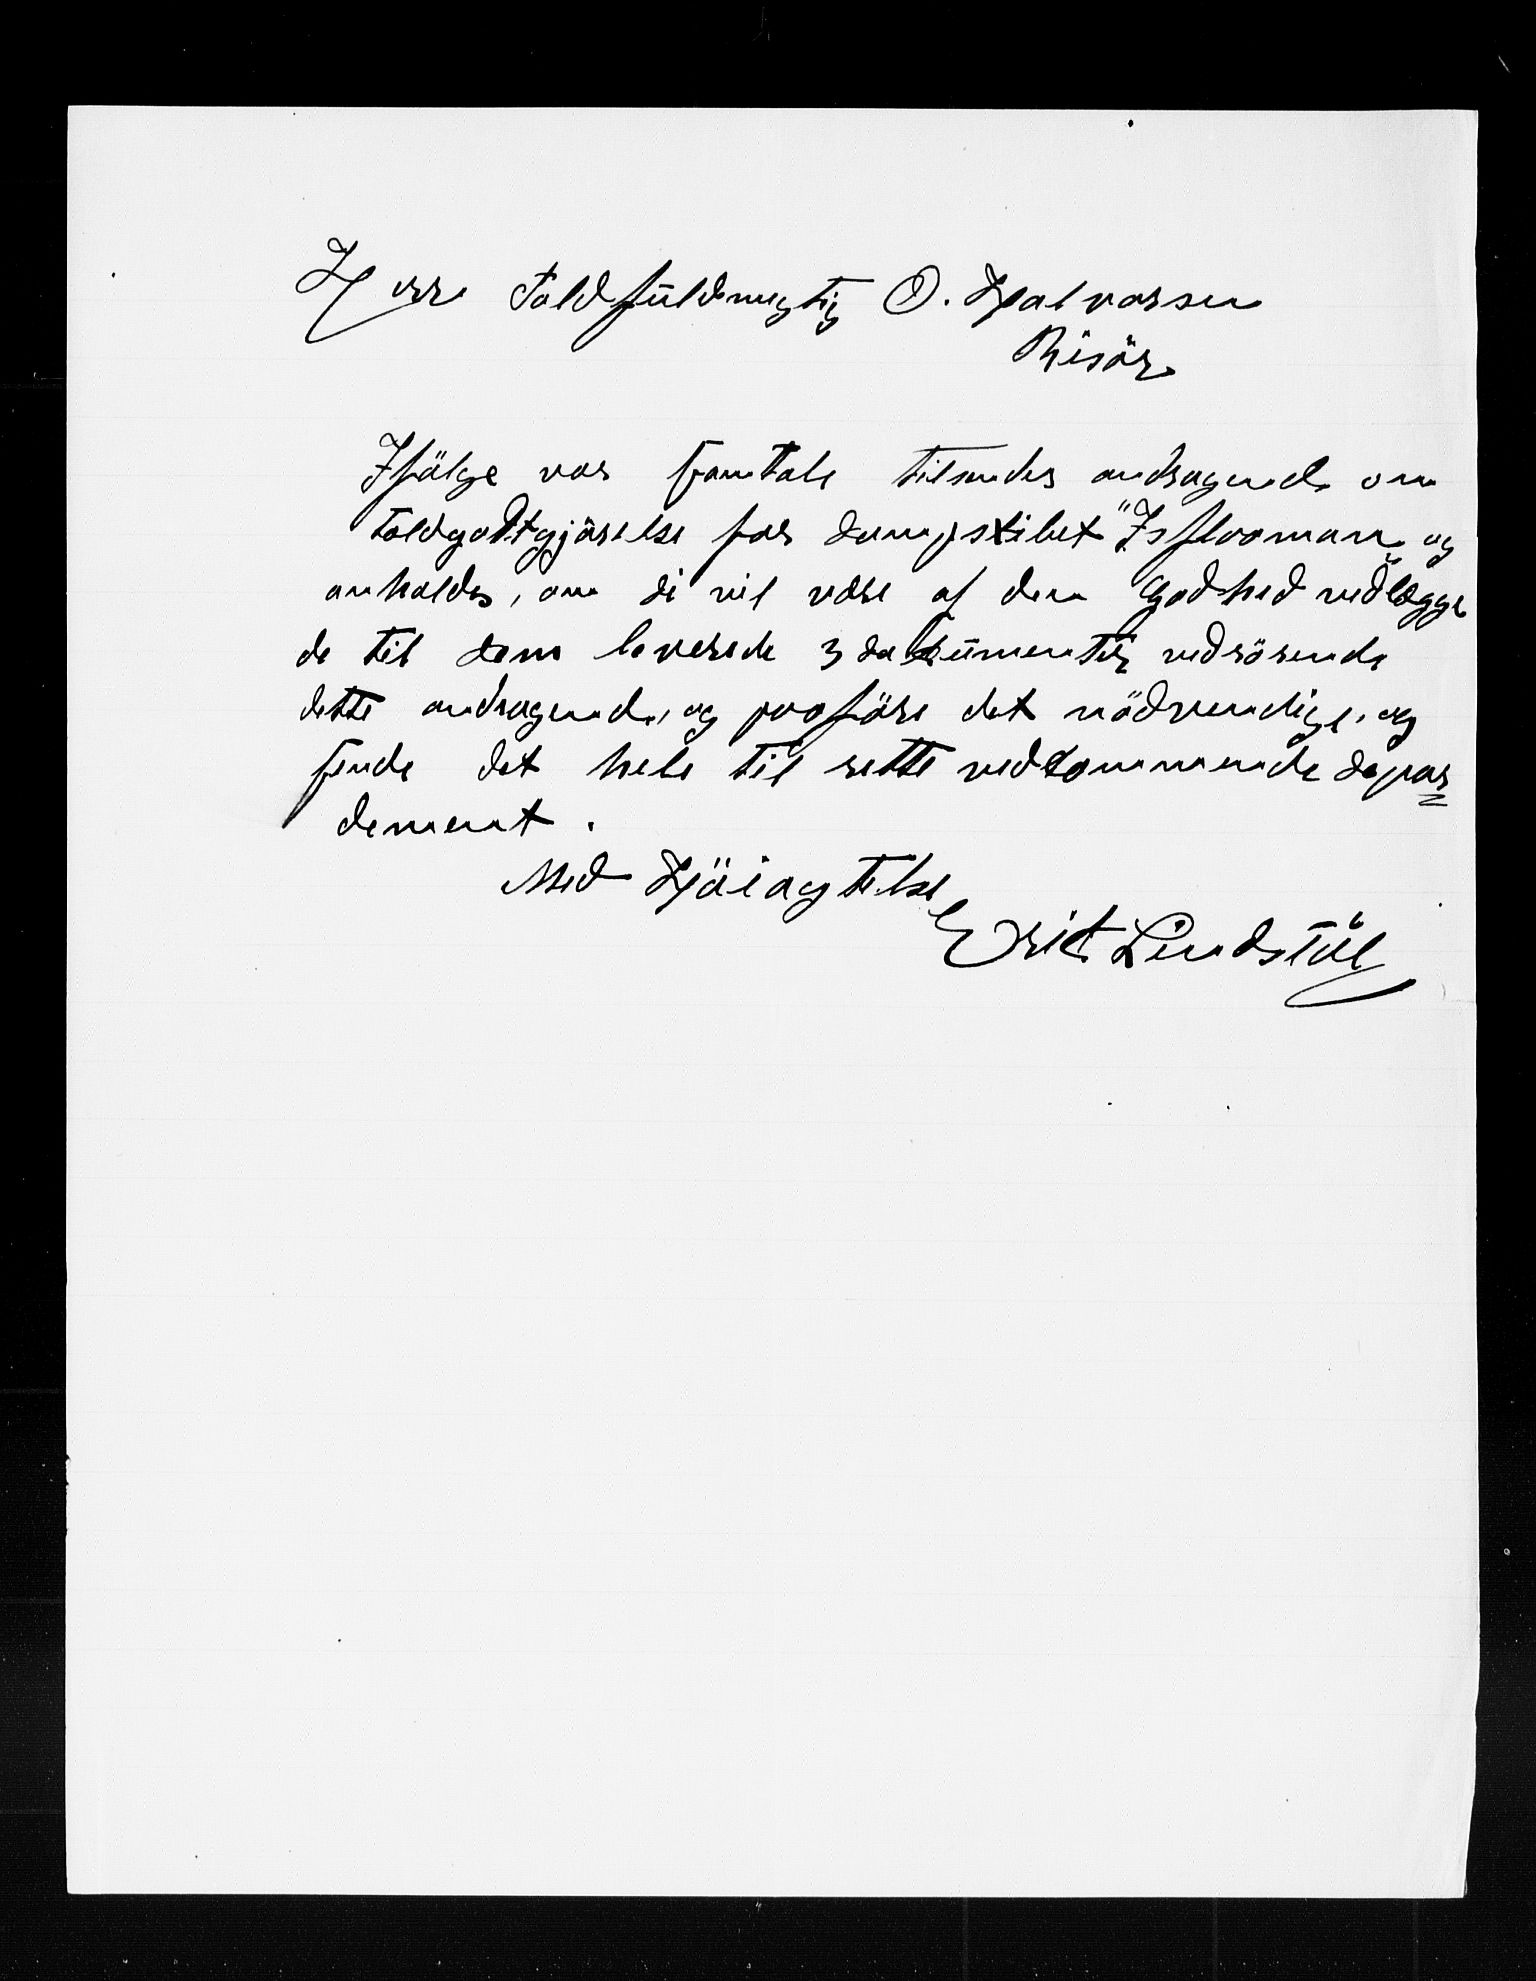 Herr Toldfuldmegtig O. Halvorsen
Risör
Ifölge vor samtale tilsendes andragende om
toldgodtgjörelse for dampskibet "Is
anholdes, om di vil være af den godhed vedlægge
de til dem leverede 3 dokumenter vedrörende
dette andragende, og paaföre det nödvendige, og
sende det hele til rette vedkommende depar=
dement.
Med Höiagtelse
Erik Lindstöl